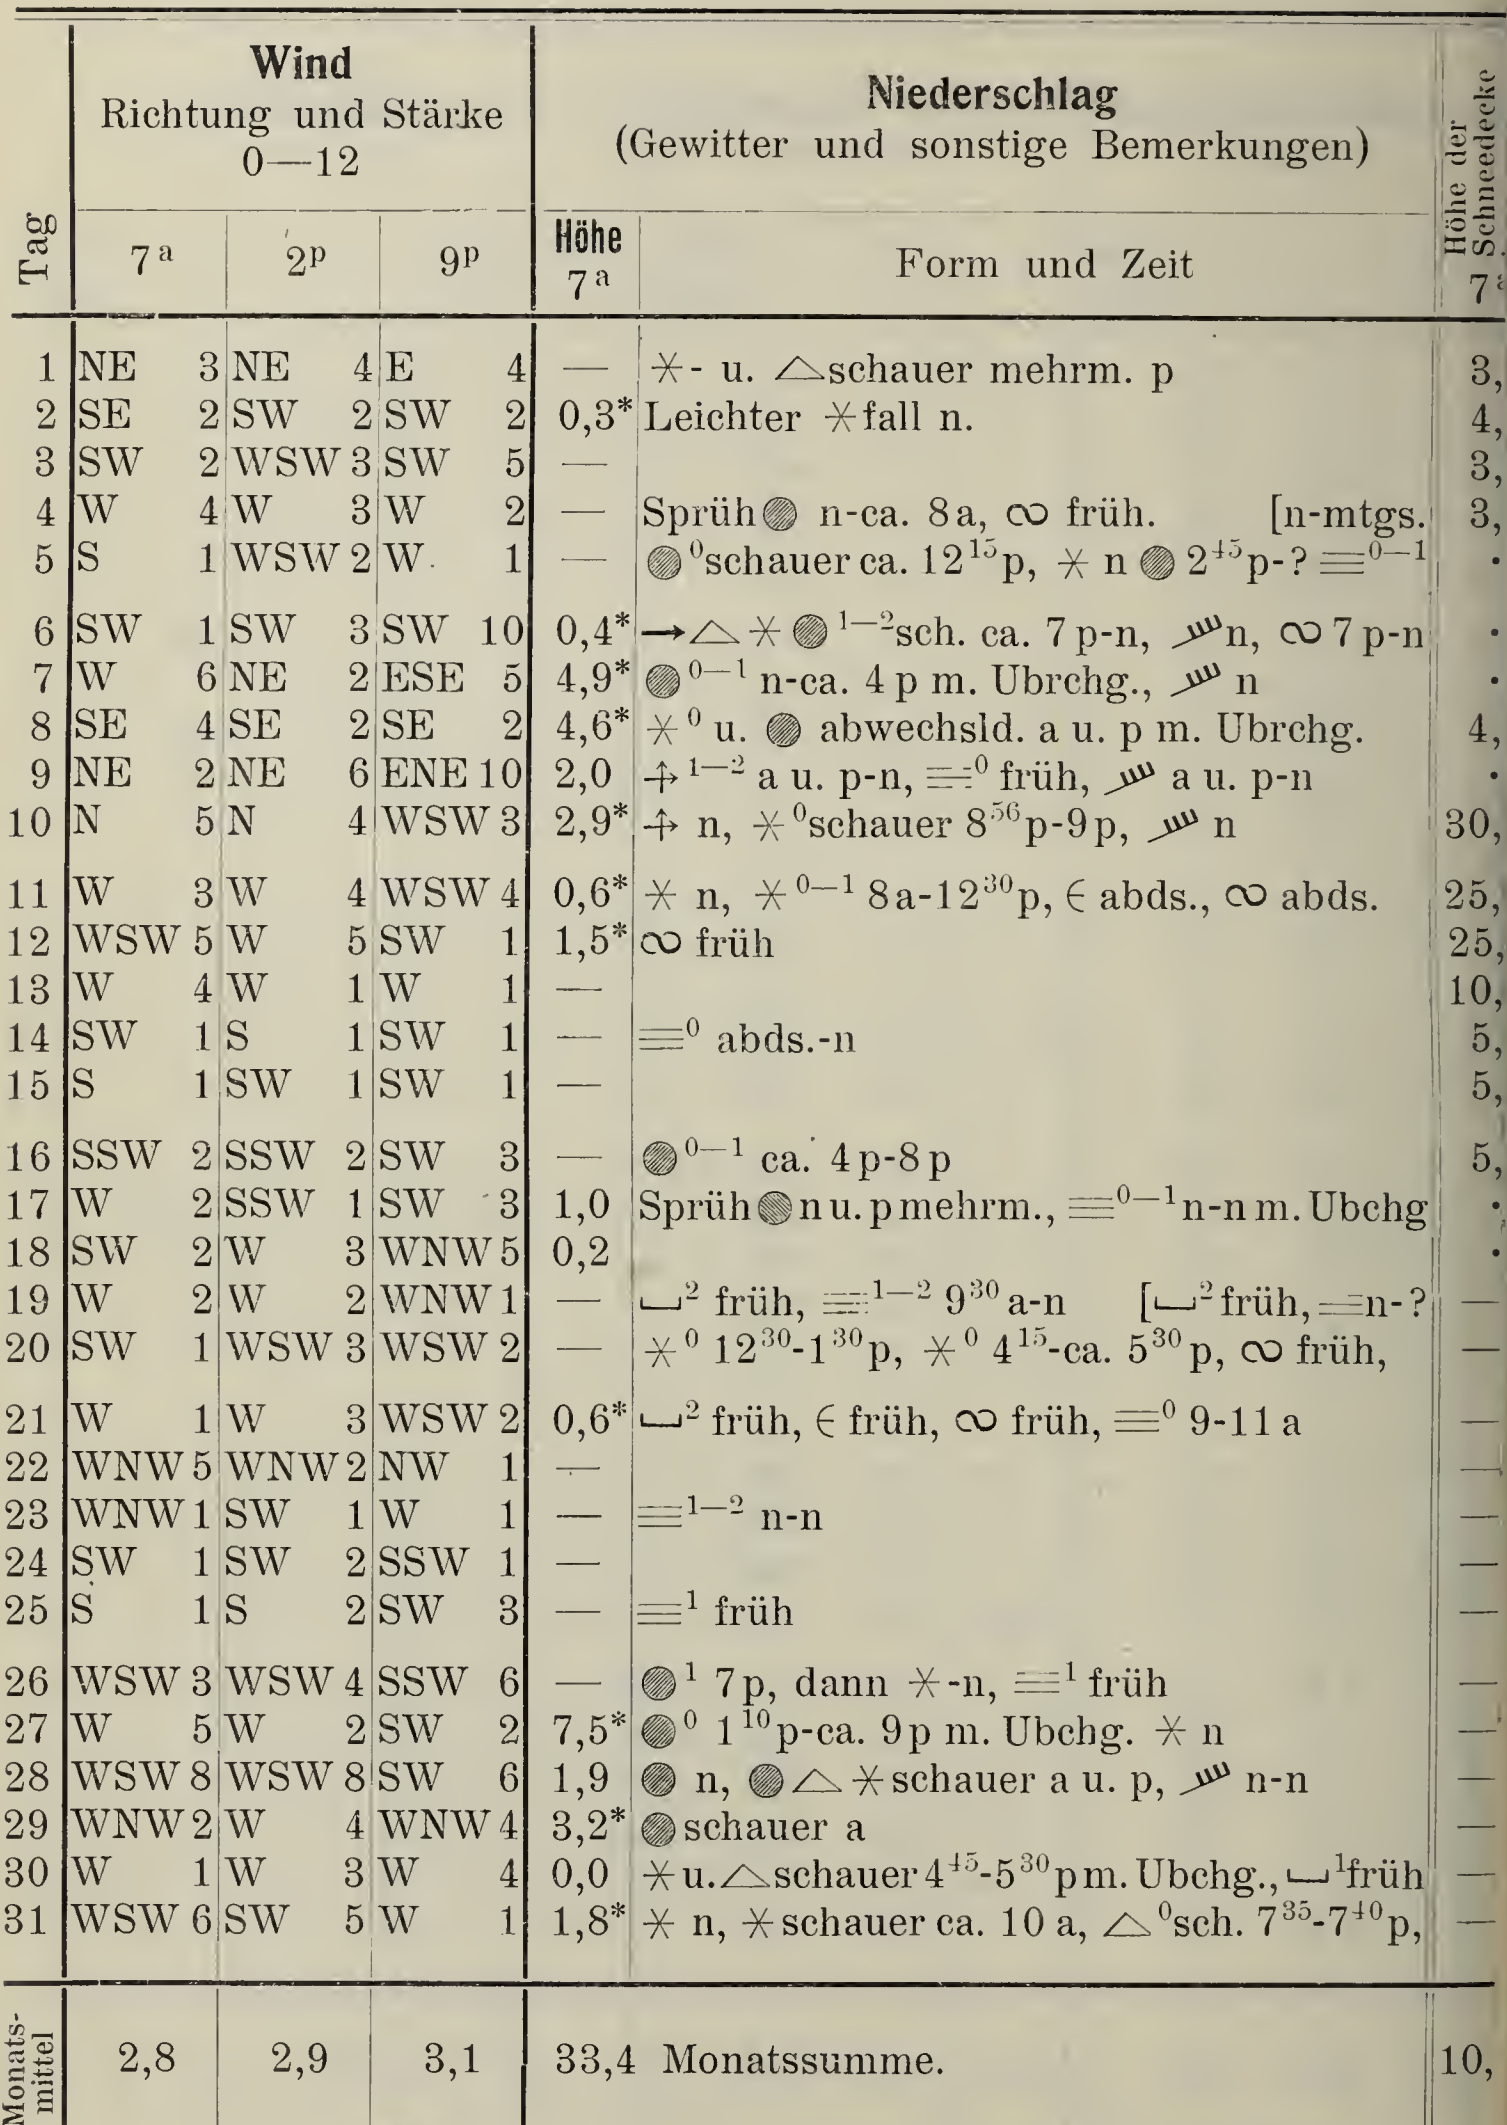 Wind
Richtung und Stärke
0—12
Niederschlag
(Gewitter und sonstige Bemerkungen)
Höhe der
Schneedecke
Tag
7a 2p 9p Höhe 7a Form und Zeit 7a
1 NE 3 NE 4 E 4 — ✳- u. △schauer mehrm. p 3,
2 SE 2 SW 2 SW 2 0,3* Leichter ✳fall n. 4,
3 SW 2 WSW 3 SW 5 — 3,
4 W 4 W 3 W 2 — Sprüh● n-ca. 8a, ∞ früh. [n-mtgs. 3,
5 S 1 WSW 2 W 1 — ●⁰schauer ca. 12¹⁵p, ✳ n ● 2⁴⁵p-? ≡⁰—¹ •
6 SW 1 SW 3 SW 10 0,4* →△✳●¹—²sch. ca. 7p-n, n, ∞ 7p-n •
7 W 6 NE 2 ESE 5 4,9* ●⁰—¹ n-ca. 4p m. Ubrchg., n •
8 SE 4 SE 2 SE 2 4,6* ✳⁰ u. ● abwechsld. a u. p m. Ubrchg. 4,
9 NE 2 NE 6 ENE 10 2,0 ¹—² a u. p-n, ≡⁰ früh, a u. p-n •
10 N 5 N 4 WSW 3 2,9* n, ✳⁰schauer 8⁵⁶p-9p, n 30,
11 W 3 W 4 WSW 4 0,6* ✳ n, ✳⁰—¹ 8a-12³⁰p, ∈ abds., ∞ abds. 25,
12 WSW 5 W 5 SW 1 1,5* ∞ früh 25,
13 W 4 W 1 W 1 — 10,
14 SW 1 S 1 SW 1 — ≡⁰ abds.-n 5,
15 S 1 SW 1 SW 1 — 5,
16 SSW 2 SSW 2 SW 3 — ●⁰—¹ ca. 4p-8p 5,
17 W 2 SSW 1 SW 3 1,0 Sprüh● n u. p mehrm., ≡⁰—¹ n-n m. Ubchg •
18 SW 2 W 3 WNW 5 0,2 •
19 W 2 W 2 WNW 1 — ⌴² früh, ≡¹—² 9³⁰a-n [⌴² früh, ≡n-? —
20 SW 1 WSW 3 WSW 2 — ✳⁰ 12³⁰-1³⁰p, ✳⁰ 4¹⁵-ca. 5³⁰p, ∞ früh, —
21 W 1 W 3 WSW 2 0,6* ⌴² früh, ∈ früh, ∞ früh, ≡⁰ 9-11a —
22 WNW 5 WNW 2 NW 1 — —
23 WNW 1 SW 1 W 1 — ≡¹—² n-n —
24 SW 1 SW 2 SSW 1 — —
25 S 1 S 2 SW 3 — ≡¹ früh —
26 WSW 3 WSW 4 SSW 6 — ●¹ 7p, dann ✳-n, ≡¹ früh —
27 W 5 W 2 SW 2 7,5* ●⁰ 1¹⁰p-ca. 9p m. Ubchg. ✳ n —
28 WSW 8 WSW 8 SW 6 1,9 ● n, ●△✳schauer a u. p, n-n —
29 WNW 2 W 4 WNW 4 3,2* ●schauer a —
30 W 1 W 3 W 4 0,0 ✳ u. △schauer 4⁴⁵-5³⁰p m. Ubchg., ⌴¹früh —
31 WSW 6 SW 5 W 1 1,8* ✳ n, ✳schauer ca. 10a, △⁰sch. 7³⁵-7⁴⁰p, —
Monats-
mittel
2,8 2,9 3,1 33,4 Monatssumme. 10,